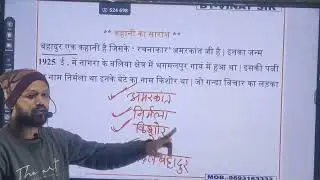 BY-VINAY SIR
524 698
** कहानी का सारांश **
बहादुर एक कहानी है जिसके ' रचनाकार' अमरकांत जी है | इनका जन्म
1925 ई . में नागरा के बलिया क्षेत्र में भगमलपुर गांव में हुआ था | इसकी पत्नी
नाम निर्मला था इनके बेटे का नाम किशोर था | जो गन्दा विचार का लड़का
अमरकांत
निर्मला
किशोर
बहादुर